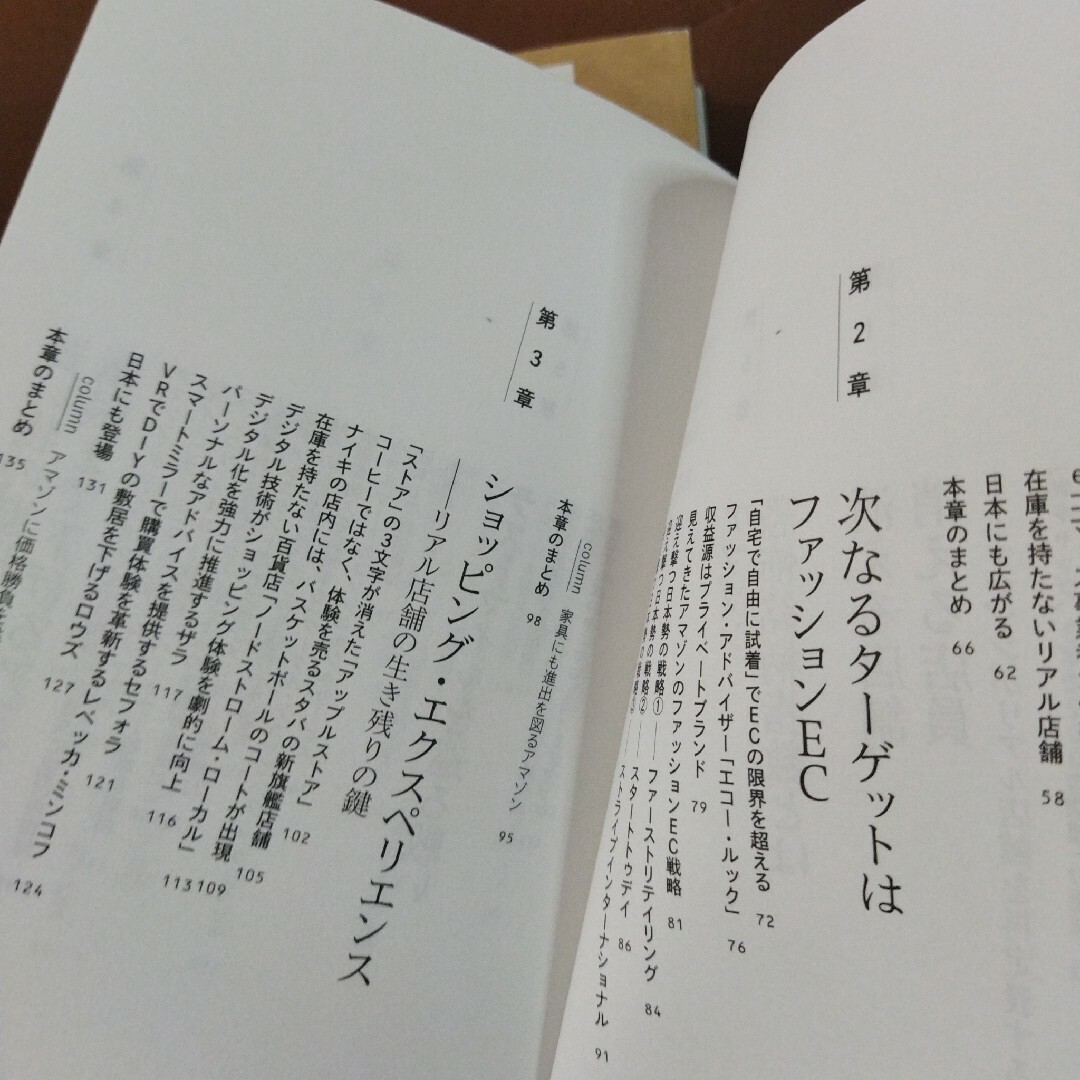 在庫を持たないリアル店舗 58
日本にも広がる 62
本章のまとめ 66
第2章
次なるターゲットは
ファッションEC
「自宅で自由に試着」でECの限界を超える 72
ファッション・アドバイザー「エコー・ルック」 76
収益源はプライベートブランド 79
見えてきたアマゾンのファッションEC戦略 81
迎え撃つ日本勢の戦略① ──ファーストリテイリング 84
迎え撃つ日本勢の戦略② ──スタートトゥデイ 86
ストライプインターナショナル 91
column 家具にも進出を図るアマゾン 95
本章のまとめ 98
第3章
ショッピング・エクスペリエンス
──リアル店舗の生き残りの鍵
「ストア」の3文字が消えた「アップルストア」 102
コーヒーではなく、体験を売るスタバの新旗艦店舗 105
ナイキの店内には、バスケットボールのコートが出現 109
在庫を持たない百貨店「ノードストローム・ローカル」 113
デジタル技術がショッピング体験を劇的に向上 116
デジタル化を強力に推進するザラ 117
パーソナルなアドバイスを提供するセフォラ 121
スマートミラーで購買体験を革新するレベッカ・ミンコフ 124
VRでDIYの敷居を下げるロウズ 127
日本にも登場 131
column アマゾンに価格勝負を
本章のまとめ 135